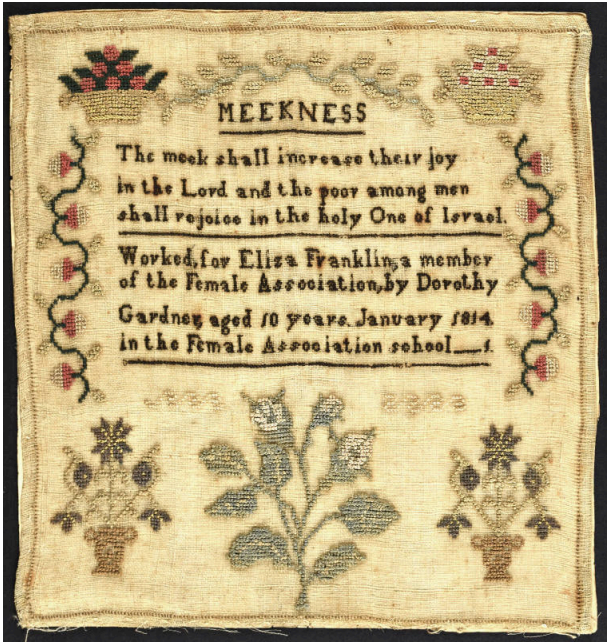 MEEKNESS
The meek shall increase their joy
in the Lord and the poor among men
shall rejoice in the holy One of Israel.
Worked, for Eliza Franklin, a member
of the Female Association, by Dorothy
Gardner, aged 10 years. January 1814.
in the Female Association school__1.